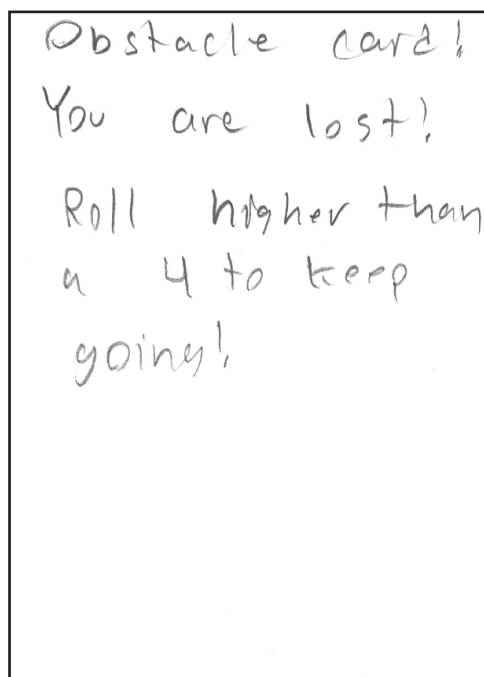 Obstacle card!
You are lost!
Roll higher than
a 4 to keep
going!